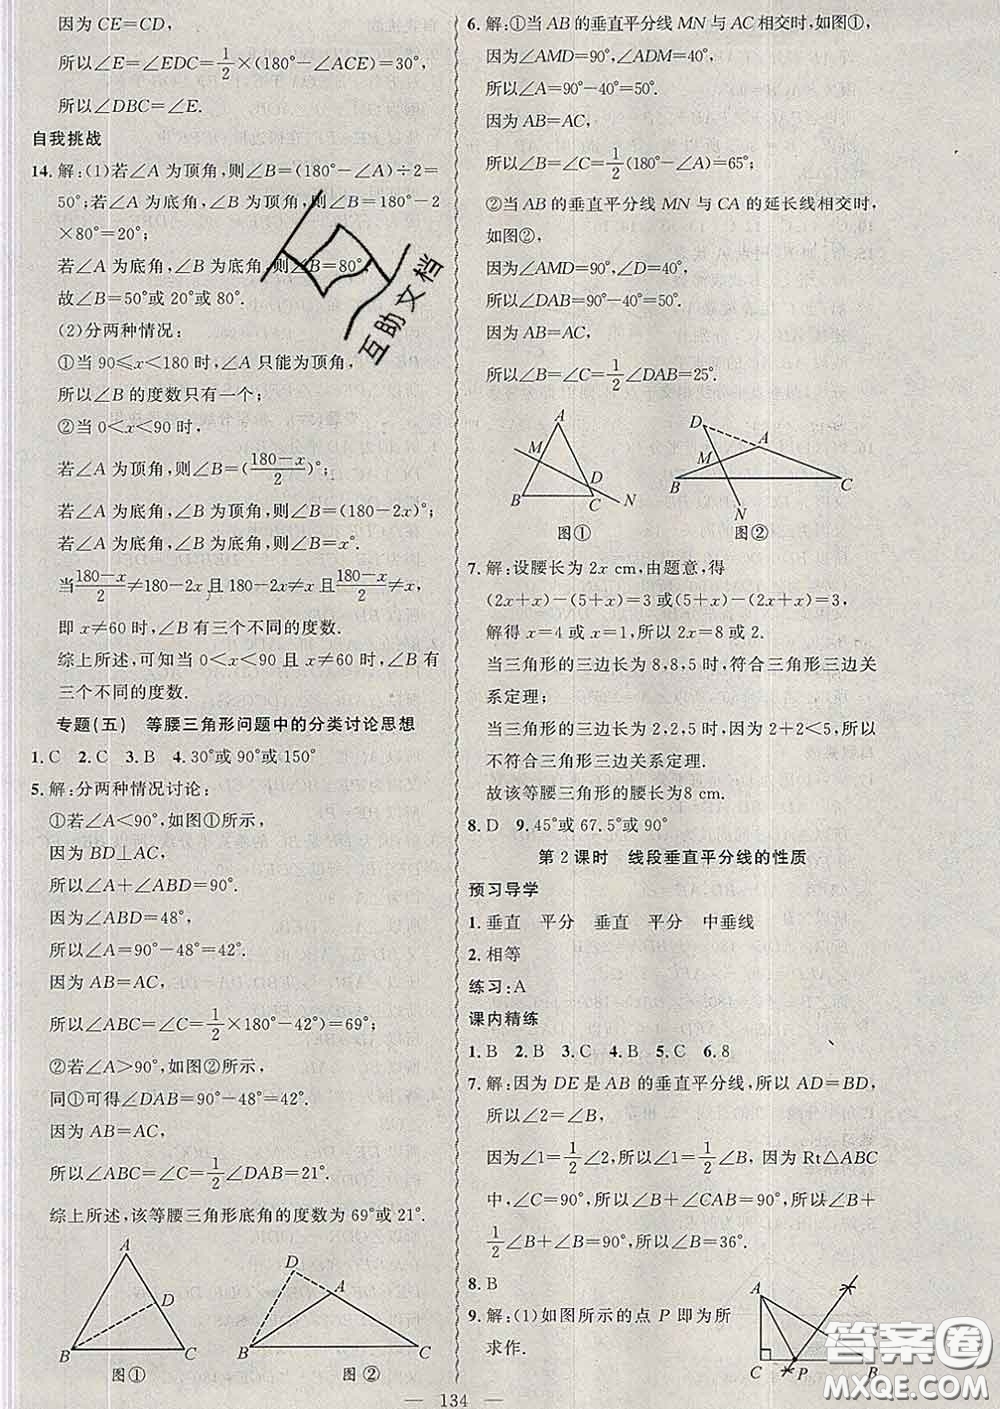 因为CE=CD,
所以∠E=∠EDC=1/2×(180°-∠ACE)=30°,
所以∠DBC=∠E.
自我挑战
14.解:(1)若∠A为顶角,则∠B=(180°-∠A)÷2=
50°;若∠A为底角,∠B为顶角,则∠B=180°-2
×80°=20°;
若∠A为底角,∠B为底角,则∠B=80°,
故∠B=50°或20°或80°.
(2)分两种情况:
①当90≤x<180时,∠A只能为顶角,
所以∠B的度数只有一个;
②当0<x<90时,
若∠A为顶角,则∠B=(180-x/2)°;
若∠A为底角,∠B为顶角,则∠B=(180-2x)°;
若∠A为底角,∠B为底角,则∠B=x°.
当180-x/2≠180-2x且180-2x≠x且180-x/2≠x,
即x≠60时,∠B有三个不同的度数.
综上所述,可知当0<x<90且x≠60时,∠B有
三个不同的度数.
专题(五) 等腰三角形问题中的分类讨论思想
1.C 2.C 3.B 4.30°或90°或150°
5.解:分两种情况讨论:
①若∠A<90°,如图①所示,
因为BD⊥AC,
所以∠A+∠ABD=90°.
因为∠ABD=48°,
所以∠A=90°-48°=42°.
因为AB=AC,
所以∠ABC=∠C=1/2×180°-42°)=69°;
②若∠A>90°,如图②所示,
同①可得∠DAB=90°-48°=42°.
因为AB=AC,
所以∠ABC=∠C=1/2∠DAB=21°.
综上所述,该等腰三角形底角的度数为69°或21°.
A
D
B
C
图①
D
A
B
C
图②
6.解:①当AB的垂直平分线MN与AC相交时,如图①,
因为∠AMD=90°,∠ADM=40°,
所以∠A=90°-40°=50°.
因为AB=AC,
所以∠B=∠C=1/2(180°-∠A)=65°;
②当AB的垂直平分线MN与CA的延长线相交时,
如图②,
因为∠AMD=90°,∠D=40°,
所以∠DAB=90°-40°=50°.
因为AB=AC,
所以∠B=∠C=1/2∠DAB=25°.
A
M
D
B
C
N
图①
D
A
M
B
C
N
图②
7.解:设腰长为2x cm,由题意,得
(2x+x)-(5+x)=3或(5+x)-(2x+x)=3,
解得x=4或x=1,所以2x=8或2.
当三角形的三边长为8,8,5时,符合三角形三边关
系定理;
当三角形的三边长为2,2,5时,因为2+2<5,所以
不符合三角形三边关系定理.
故该等腰三角形的腰长为8 cm.
8.D 9.45°或67.5°或90°
第2课时 线段垂直平分线的性质
预习导学
1.垂直 平分 垂直 平分 中垂线
2.相等
练习:A
课内精练
1.B 2.B 3.C 4.B 5.C 6.8
7.解:因为DE是AB的垂直平分线,所以AD=BD,
所以∠2=∠B,
因为∠1=1/2∠2,所以∠1=1/2∠B,因为Rt△ABC
中,∠C=90°,所以∠B+∠CAB=90°,所以∠B+
1/2∠B+∠B=90°,所以∠B=36°.
8.B
9.解:(1)如图所示的点P即为所
求作.
A
C
P
B
134
互助文档
答案圈
MXQE.COM